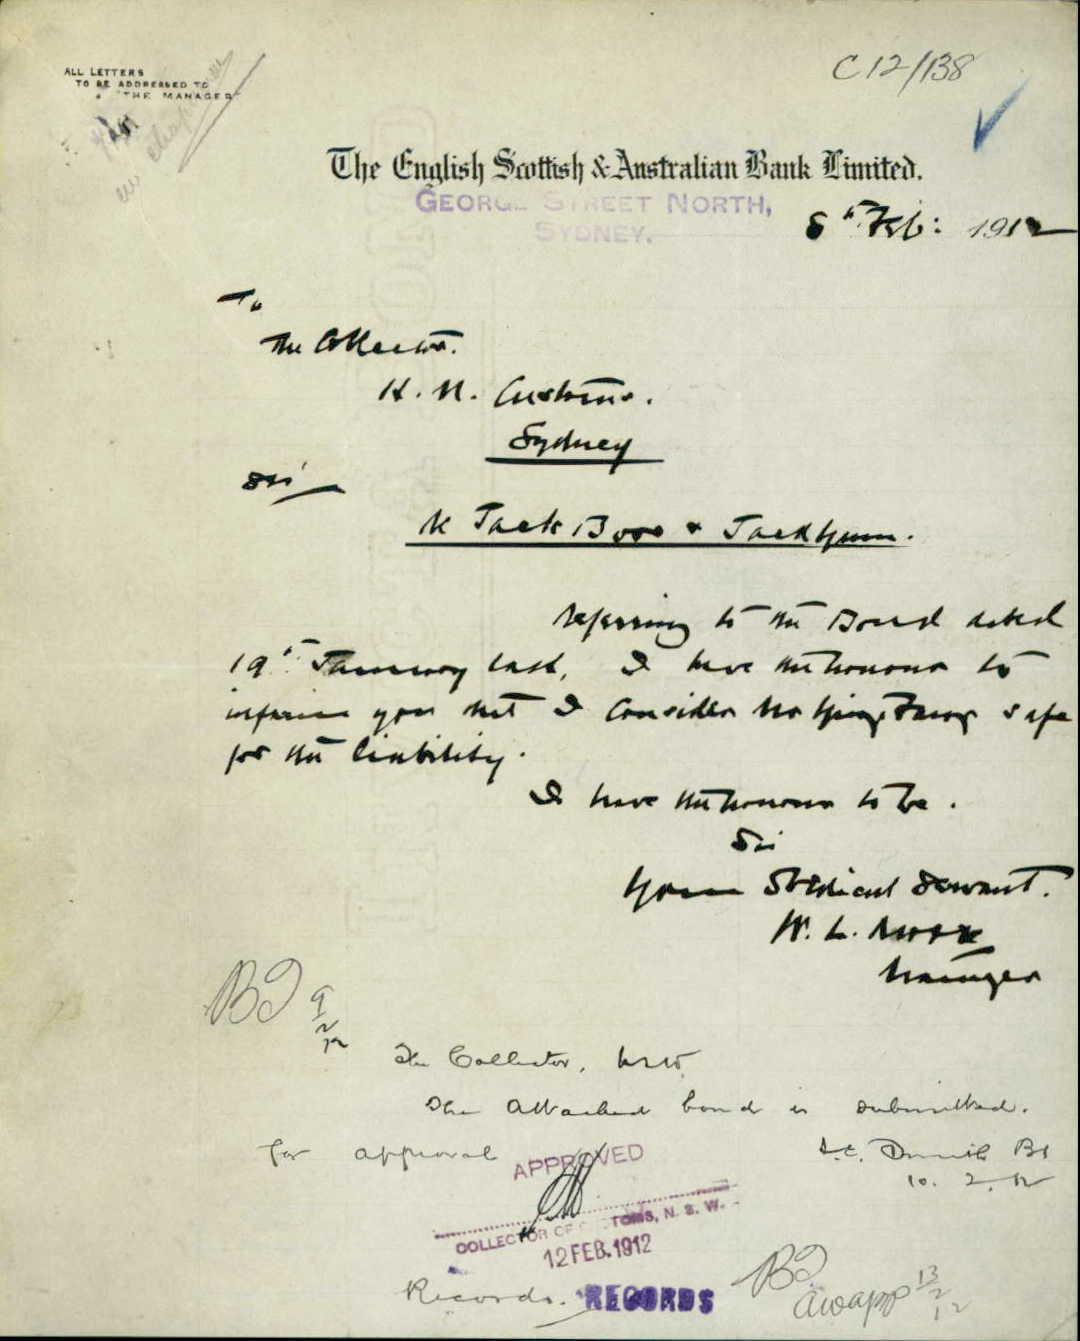 C 12/138
ALL LETTERS
TO BE ADDRESSED TO
"THE MANAGER"
The English Scottish & Australian Bank Limited.
GEORGE STREET NORTH,
SYDNEY.
8th Feb: 1912
To
The Collector.
H. M. Customs.
Sydney
Sir
Jack Boo & Jack
Referring to the Bond dated
19th January last, I have the honour to
inform you that I consider safe
for the liability.
I have the honour to be.
Sir
Your Obedient Servant.
W. L.
Manager
9/2/12
The Collector, NSW
The attached bond is submitted.
for approval
10.2.12
APPROVED
COLLECTOR OF CUSTOMS, N. S. W.
12 FEB. 1912
Records. RECORDS
13/2/12